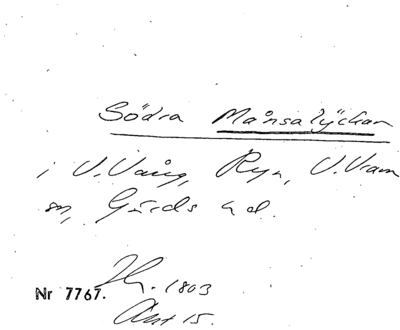 Södra Månsalyckan
i V. Vång, Ryn, V. Vram
sn, Gärds hd.
1803
Nr 7767.
Akt 15.